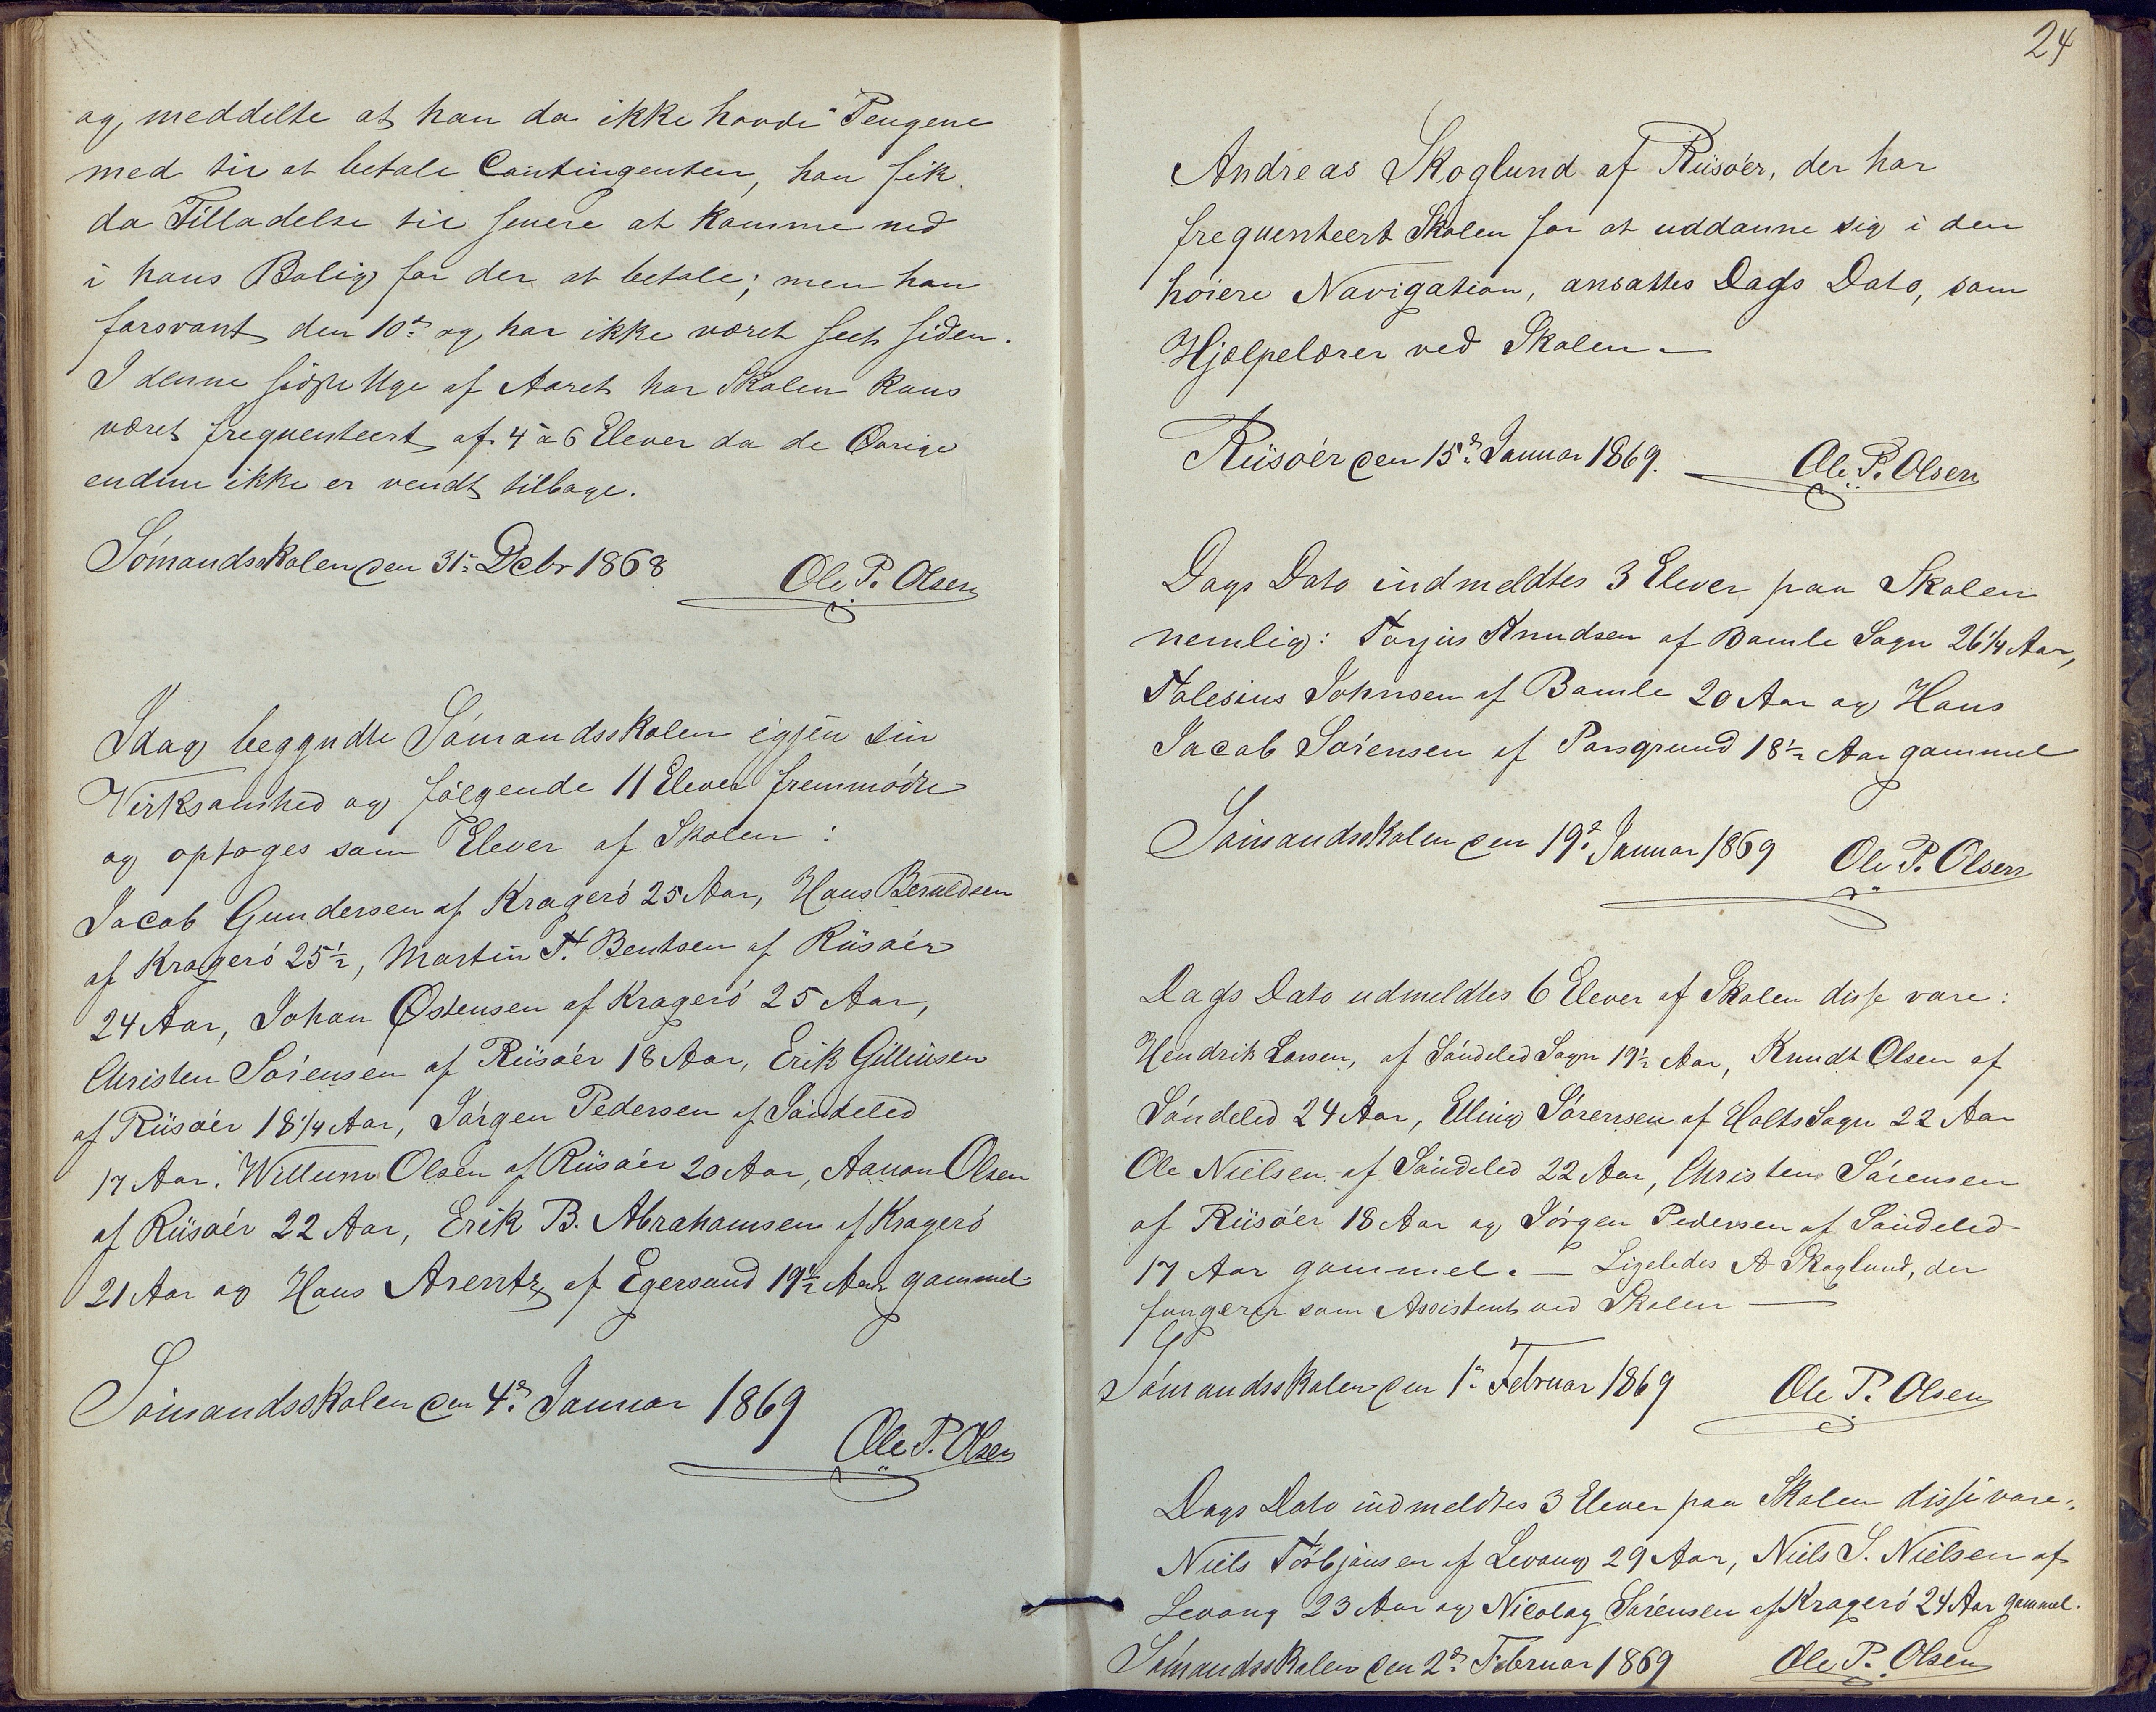 og meddelte at han da ikke havde Pengene
med til at betale Contingenten, han fik
da Tilladelse til senere at komme ned
i hans Bolig for der at betale; men han
forsvant den 10de og har ikke været seet siden.
I denne sidste Uge af Aaret har Skolen kuns
været frequenteert af 4 a 6 Elever da de Øvrige
endnu ikke er vendt tilbage.
Sømandsskolen den 31te Dcbr 1868
Ole P. Olsen
Idag begyndte Sømandsskolen igjen sin
Virksomhed og følgende 11 Elever fremmødte
og optoges som Elever af Skolen:
Jacob Gundersen af Kragerö 25 Aar, Hans Beruldsen
af Kragerö 25½, Martin T. Bentsen af Riisøer
24 Aar, Johan Østensen af Kragerö 25 Aar,
Christen Sörensen af Riisøer 18 Aar, Erik Gülliusen
af Riisøer 18 1/4 Aar, Jörgen Pedersen af Söndeled
17 Aar. Willum Olsen af Riisøer 20 Aar, Aanon Olsen
af Riisøer 22 Aar, Erik B. Abrahamsen af Kragerö
21 Aar og Hans Arentz af Egersund 19½ Aar gammel
Sömandsskolen den 4de Januar 1869
Ole P. Olsen
24
Andreas Skoglund af Riisøer, der har
frequenteert Skolen for at uddanne sig i den
høiere Navigation, ansattes Dags Dato, som
Hjælpelærer ved Skolen —
Riisøer den 15de Januar 1869.
Ole P. Olsen
Dags Dato indmeldtes 3 Elever paa Skolen
nemlig: Torjus Knudsen af Bamle Sogn 26 1/4 Aar,
Talesius Johnsen af Bamle 20 Aar og Hans
Jacob Sörensen af Porsgrund 18½ Aar gammel
Sömandsskolen den 19de Januar 1869
Ole P. Olsen
Dags Dato udmeldtes 6 Elever af Skolen disse vare:
Hendrik Larsen, af Söndeled Sogn 19½ Aar, Knudt Olsen af
Söndeled 24 Aar, Elling Sörensen af Holts Sogn 22 Aar
Ole Nielsen af Söndeled 22 Aar, Christen Sörensen
af Riisøer 18 Aar og Jörgen Pedersen af Söndeled
17 Aar gammel. — Ligeledes A Skoglund, der
fungerer som Assistent ved Skolen —
Sömandsskolen den 1te Februar 1869
Ole P. Olsen
Dags Dato indmeldtes 3 Elever paa Skolen disse vare:
Niels Törbjönsen af Levang 29 Aar, Niels S. Nielsen af
Levang 23 Aar og Nicolay Sörensen af Kragerö 24 Aar gammel.
Sömandsskolen den 2de Februar 1869
Ole P. Olsen